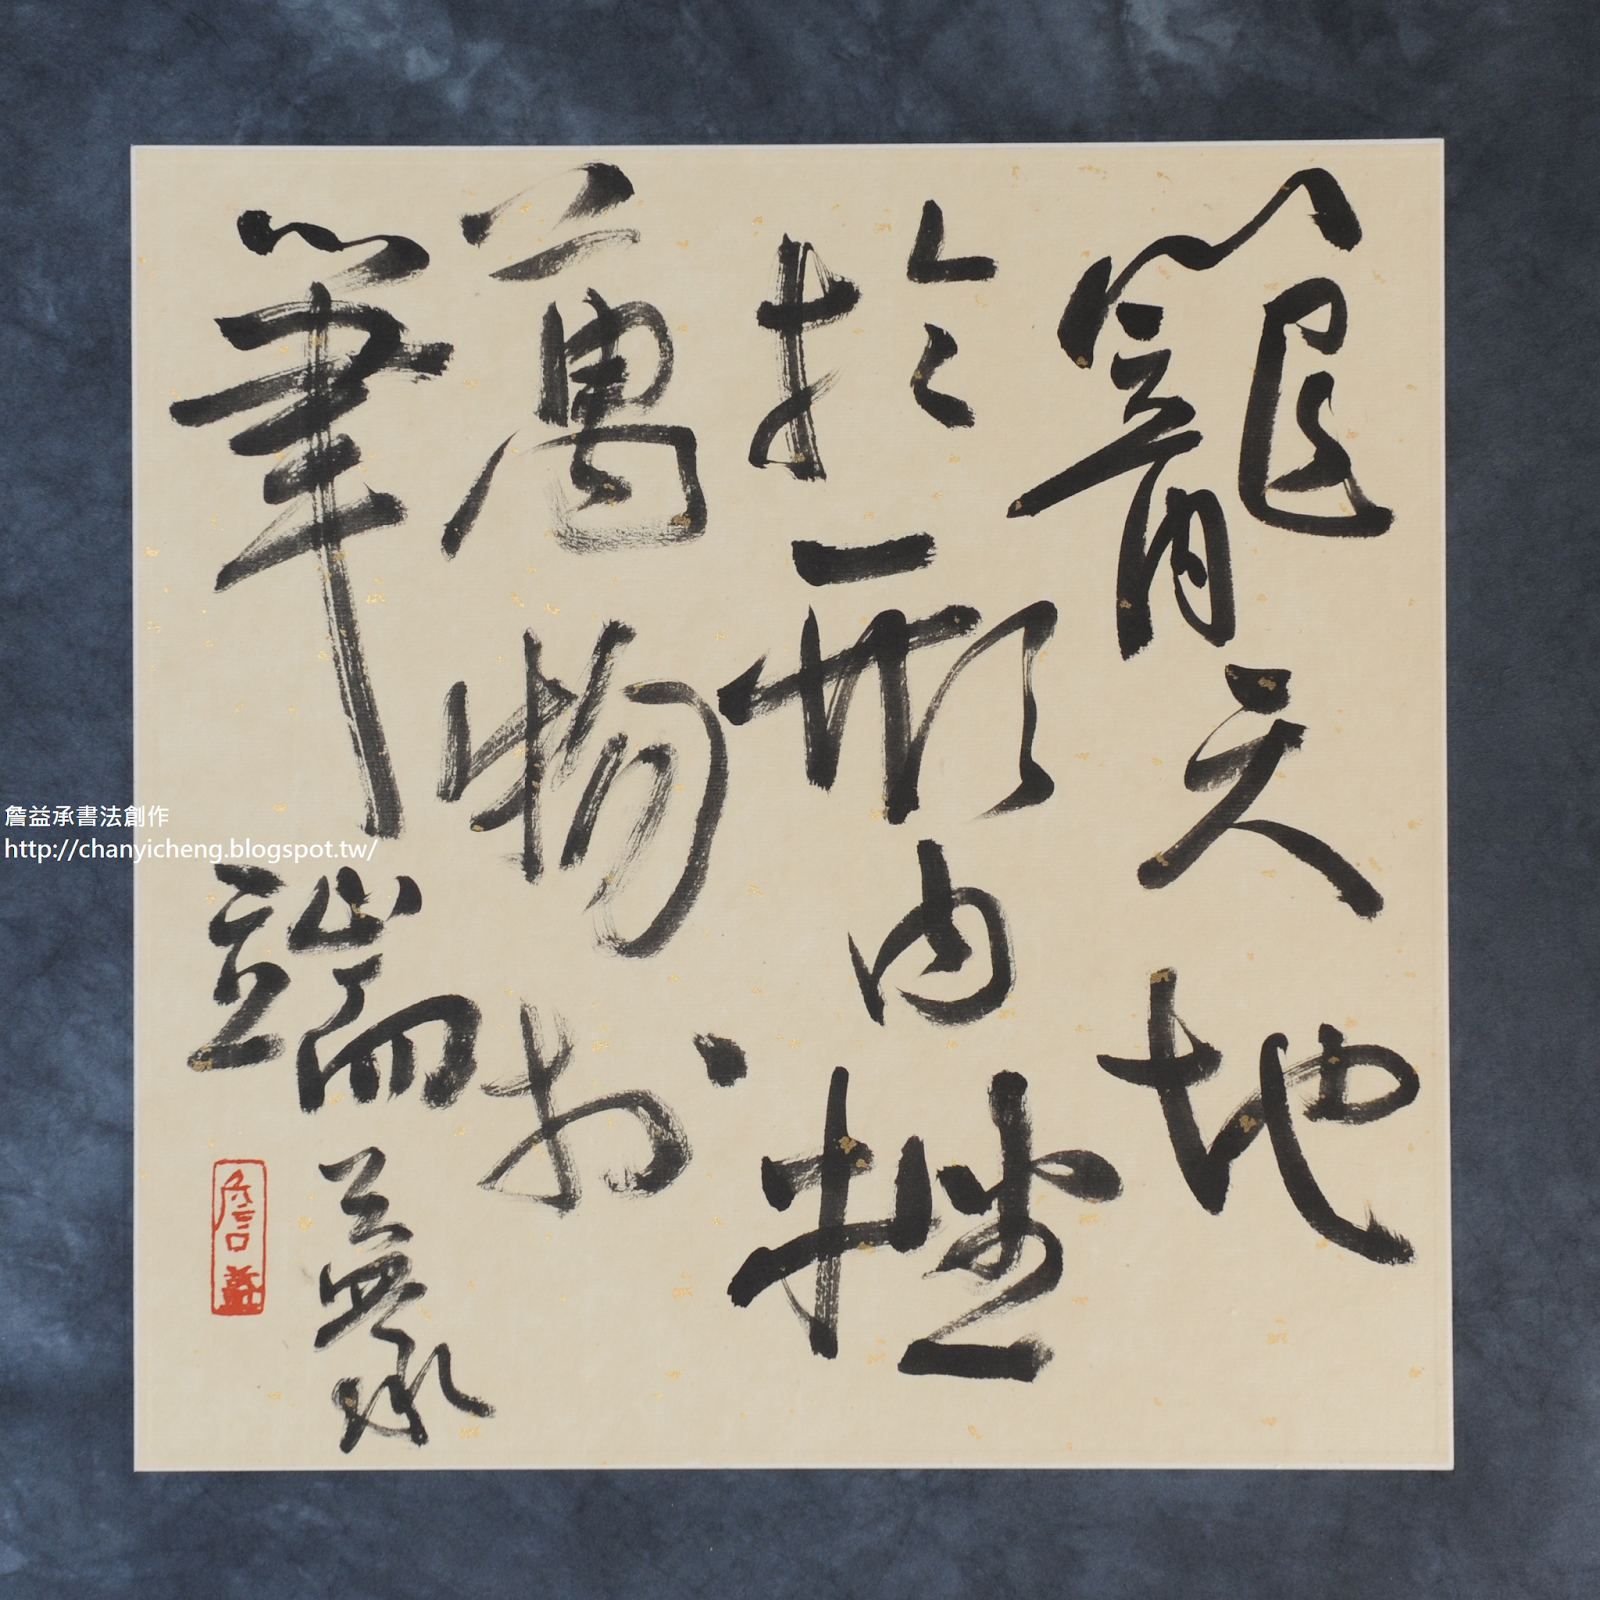 籠天地
於形內挫
萬物於
筆端 益承
詹益
詹益承書法創作
http://chanyicheng.blogspot.tw/